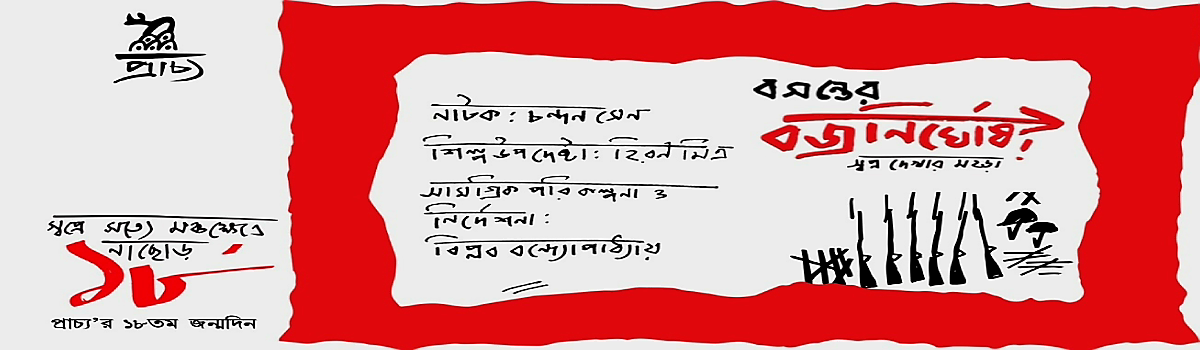 প্রাচ্য
স্বপ্নে সত্যে মঞ্চক্ষেত্রে
নাছোড়
১৮
প্রাচ্য'র ১৮তম জন্মদিন
নাটক : চন্দন সেন
শিল্প উপদেষ্টা : হিরণ মিত্র
সামগ্রিক পরিকল্পনা ও
নির্দেশনা :
বিপ্লব বন্দ্যোপাধ্যায়
বসন্তের
বজ্রনির্ঘোষ!
স্বপ্ন দেখার মহড়া